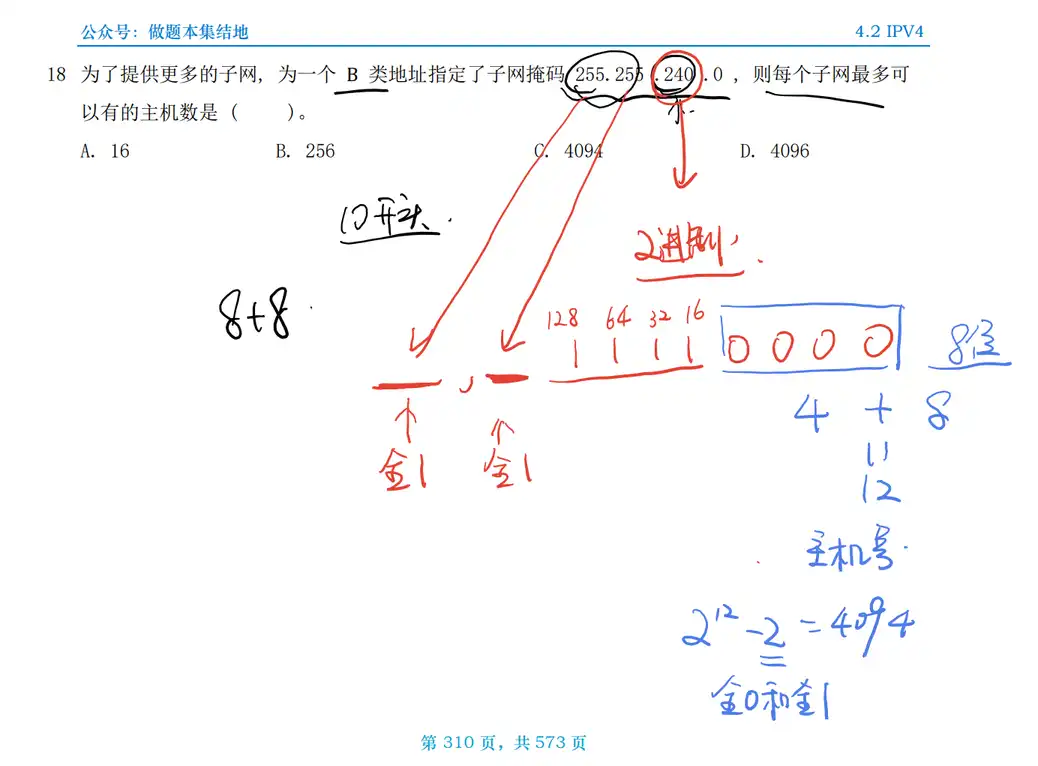 公众号：做题本集结地 4.2 IPV4
18 为了提供更多的子网，为一个 B 类地址指定了子网掩码 255.255.240.0 ，则每个子网最多可
以有的主机数是（ ）。
A. 16 B. 256 C. 4094 D. 4096
10开头.
2进制
8+8
128 64 32 16
1 1 1 1 0 0 0 0 8位
4 + 8
全1 全1
12
主机号
2^12 -2 = 4094
全0和全1
第 310 页，共 573 页